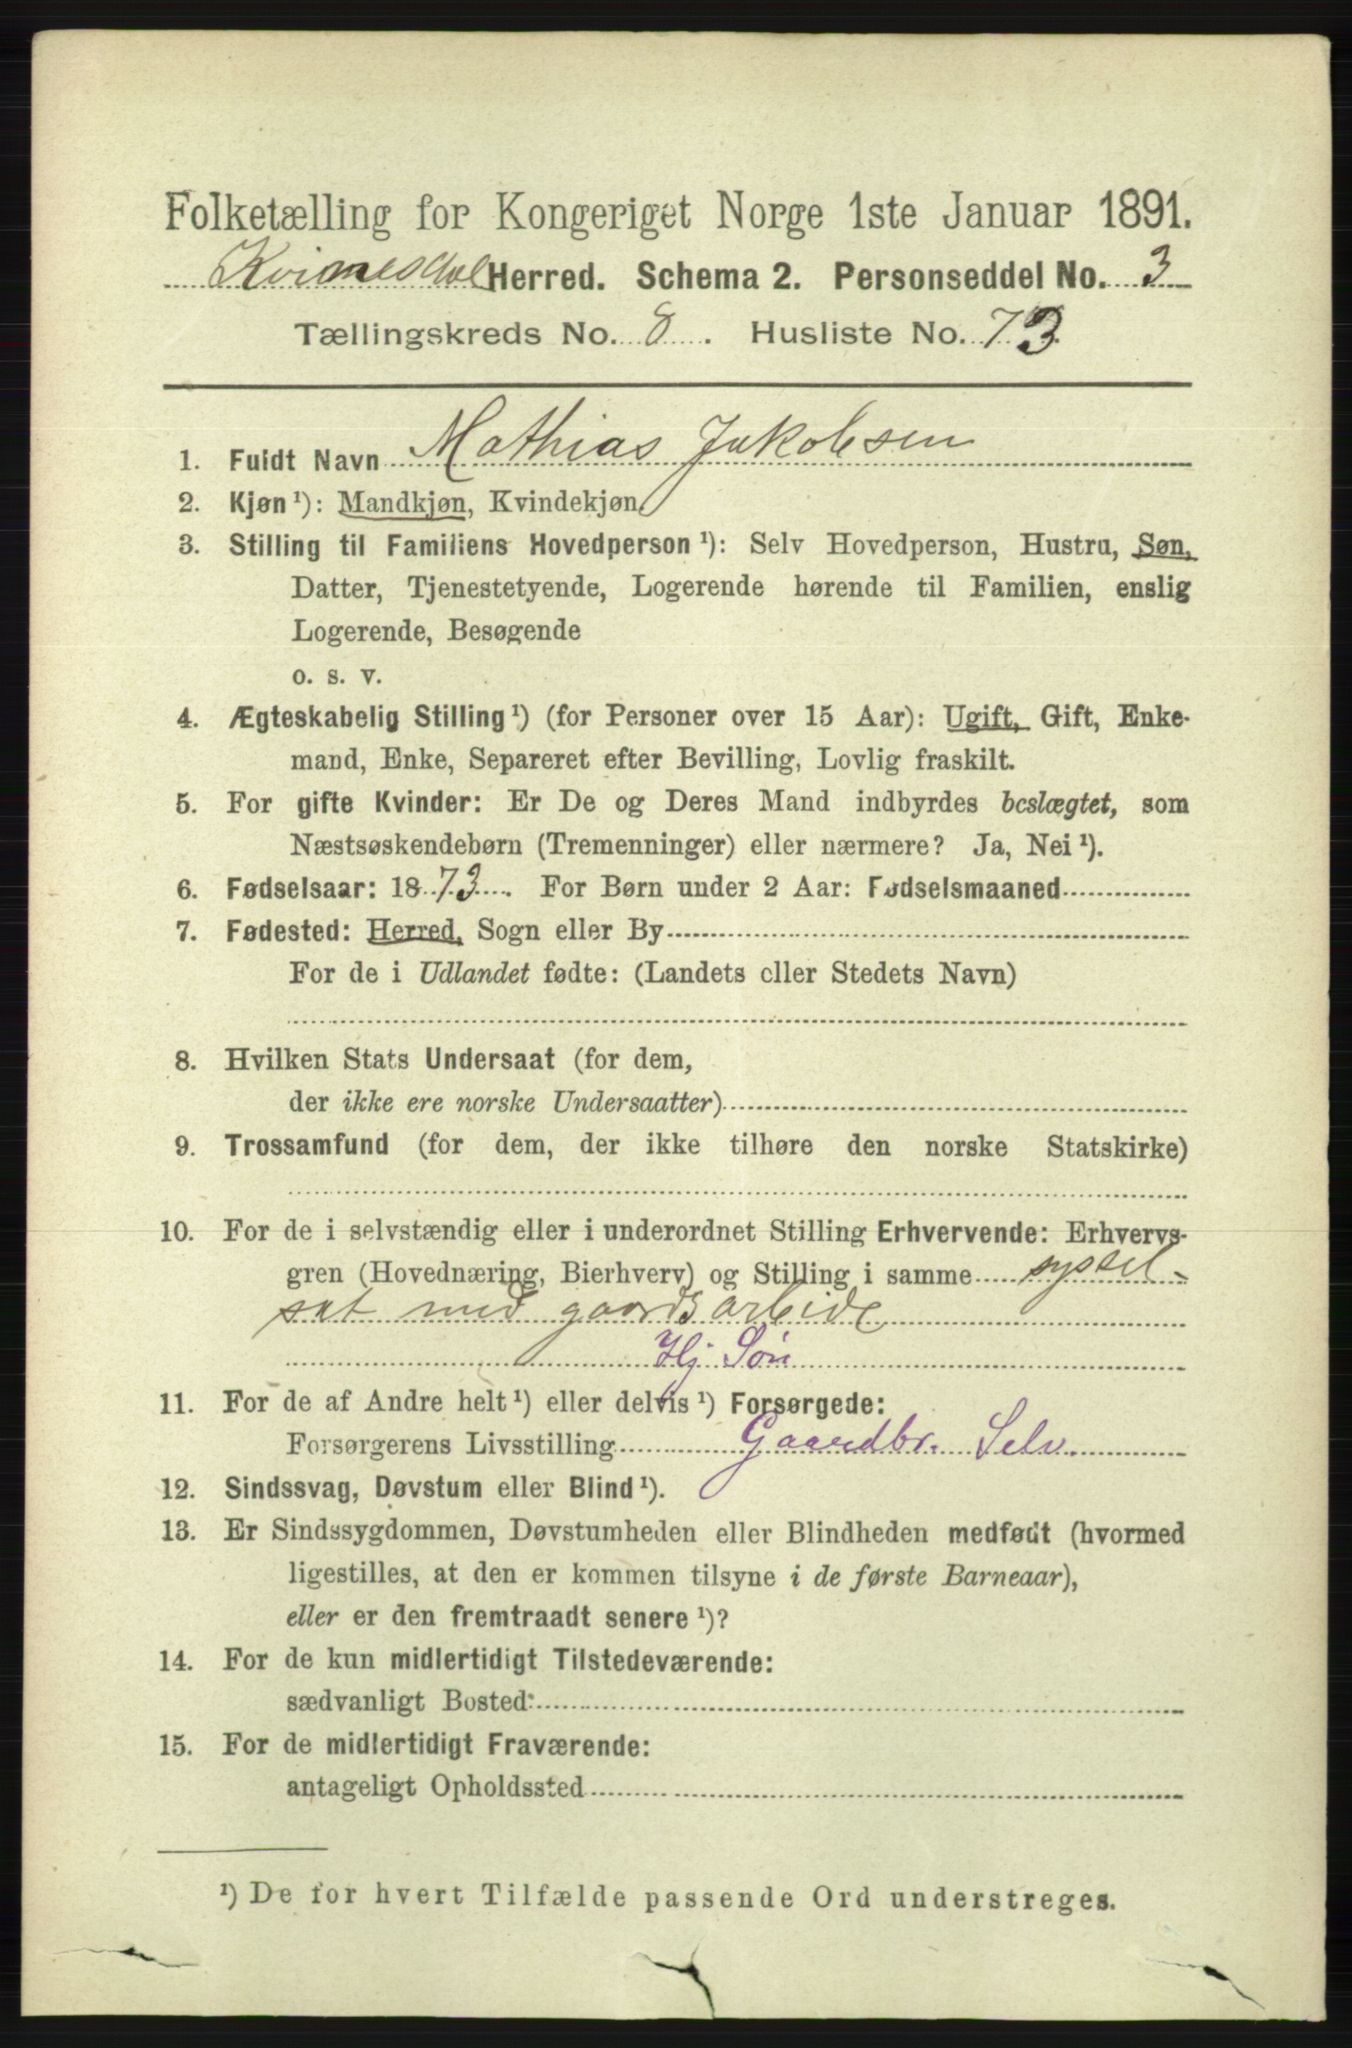 Folketælling for Kongeriget Norge 1ste Januar 1891.
Kvinesdal Herred. Schema 2. Personseddel No. 3
Tællingskreds No. 8. Husliste No. 73
1. Fuldt Navn Mathias Jakobsen
2. Kjøn ¹): Mandkjøn, Kvindekjøn
3. Stilling til Familiens Hovedperson ¹): Selv Hovedperson, Hustru, Søn,
Datter, Tjenestetyende, Logerende hørende til Familien, enslig
Logerende, Besøgende
o. s. v.
4. Ægteskabelig Stilling ¹) (for Personer over 15 Aar): Ugift, Gift, Enke-
mand, Enke, Separeret efter Bevilling, Lovlig fraskilt.
5. For gifte Kvinder: Er De og Deres Mand indbyrdes beslægtet, som
Næstsøskendebørn (Tremenninger) eller nærmere? Ja, Nei ¹).
6. Fødselsaar: 1873. For Børn under 2 Aar: Fødselsmaaned
7. Fødested: Herred, Sogn eller By
For de i Udlandet fødte: (Landets eller Stedets Navn)
8. Hvilken Stats Undersaat (for dem,
der ikke ere norske Undersaatter)
9. Trossamfund (for dem, der ikke tilhøre den norske Statskirke)
10. For de i selvstændig eller i underordnet Stilling Erhvervende: Erhvervs-
gren (Hovednæring, Bierhverv) og Stilling i samme syssel-
sat med gaardsarbeide
Hj Søn
11. For de af Andre helt ¹) eller delvis ¹) Forsørgede:
Forsørgerens Livsstilling Gaardbr. Selv.
12. Sindssvag, Døvstum eller Blind ¹).
13. Er Sindssygdommen, Døvstumheden eller Blindheden medfødt (hvormed
ligestilles, at den er kommen tilsyne i de første Barneaar),
eller er den fremtraadt senere ¹)?
14. For de kun midlertidigt Tilstedeværende:
sædvanligt Bosted:
15. For de midlertidigt Fraværende:
antageligt Opholdssted
¹) De for hvert Tilfælde passende Ord understreges.